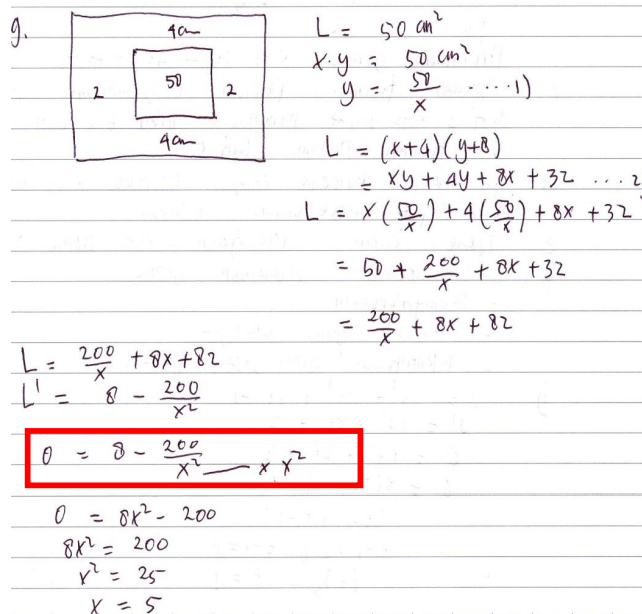 9.
4cm
2 50 2
4cm
L = 50 cm²
x·y = 50 cm²
y = 50/x ....1)
L = (x+4)(y+8)
= xy + 4y + 8x + 32 ...2
L = x(50/x) + 4(50/x) + 8x + 32
= 50 + 200/x + 8x + 32
= 200/x + 8x + 82
L = 200/x + 8x + 82
L' = 8 - 200/x²
0 = 8 - 200/x² — × x²
0 = 8x² - 200
8x² = 200
x² = 25
x = 5